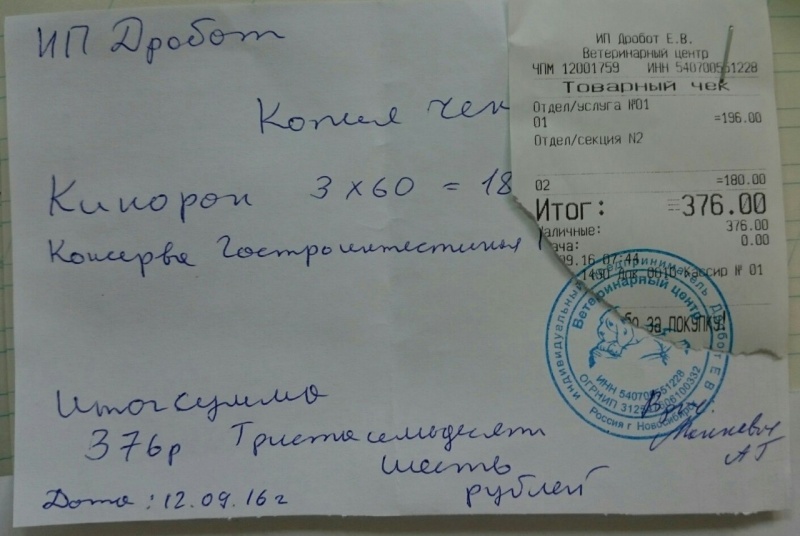 ИП Дробот
Копия чек
Кинорон 3 х 60 = 18
Консерва Гостроинтестинал
Итог сумма
376р Тристасемьдесяти
шесть
рублей
Дата: 12.09.16г
ИП Дробот Е.В.
Ветеринарный центр
ЧПМ 12001759 ИНН 540700551228
Товарный чек
Отдел/услуга №01
01 =196.00
Отдел/секция N2
02 =180.00
Итог: =376.00
Наличные: 376.00
ача: 0.00
09.16 07:44
Кассир № 01
бо за покупку!
Индивидуальный предприниматель Дробот Е В
Ветеринарный центр
ИНН 540700551228
ОГРНИП
Россия г Новосибирск
Врач
АГ